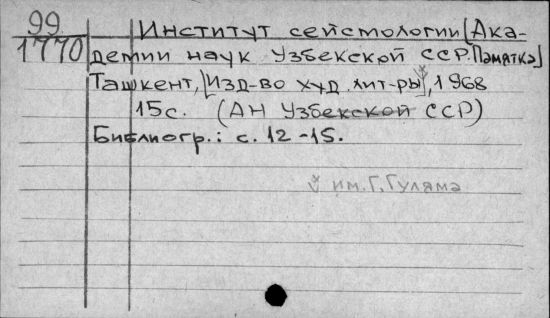 99
1770
Институт сейсмологии [Ака-
демии наук Узбекской ССР. Памятка]
Ташкент, [Изд-во худ. лит-ры], 1968
15с. (АН Узбекской ССР)
Библиогр.: с. 12-15.
им. Г. Гуляма